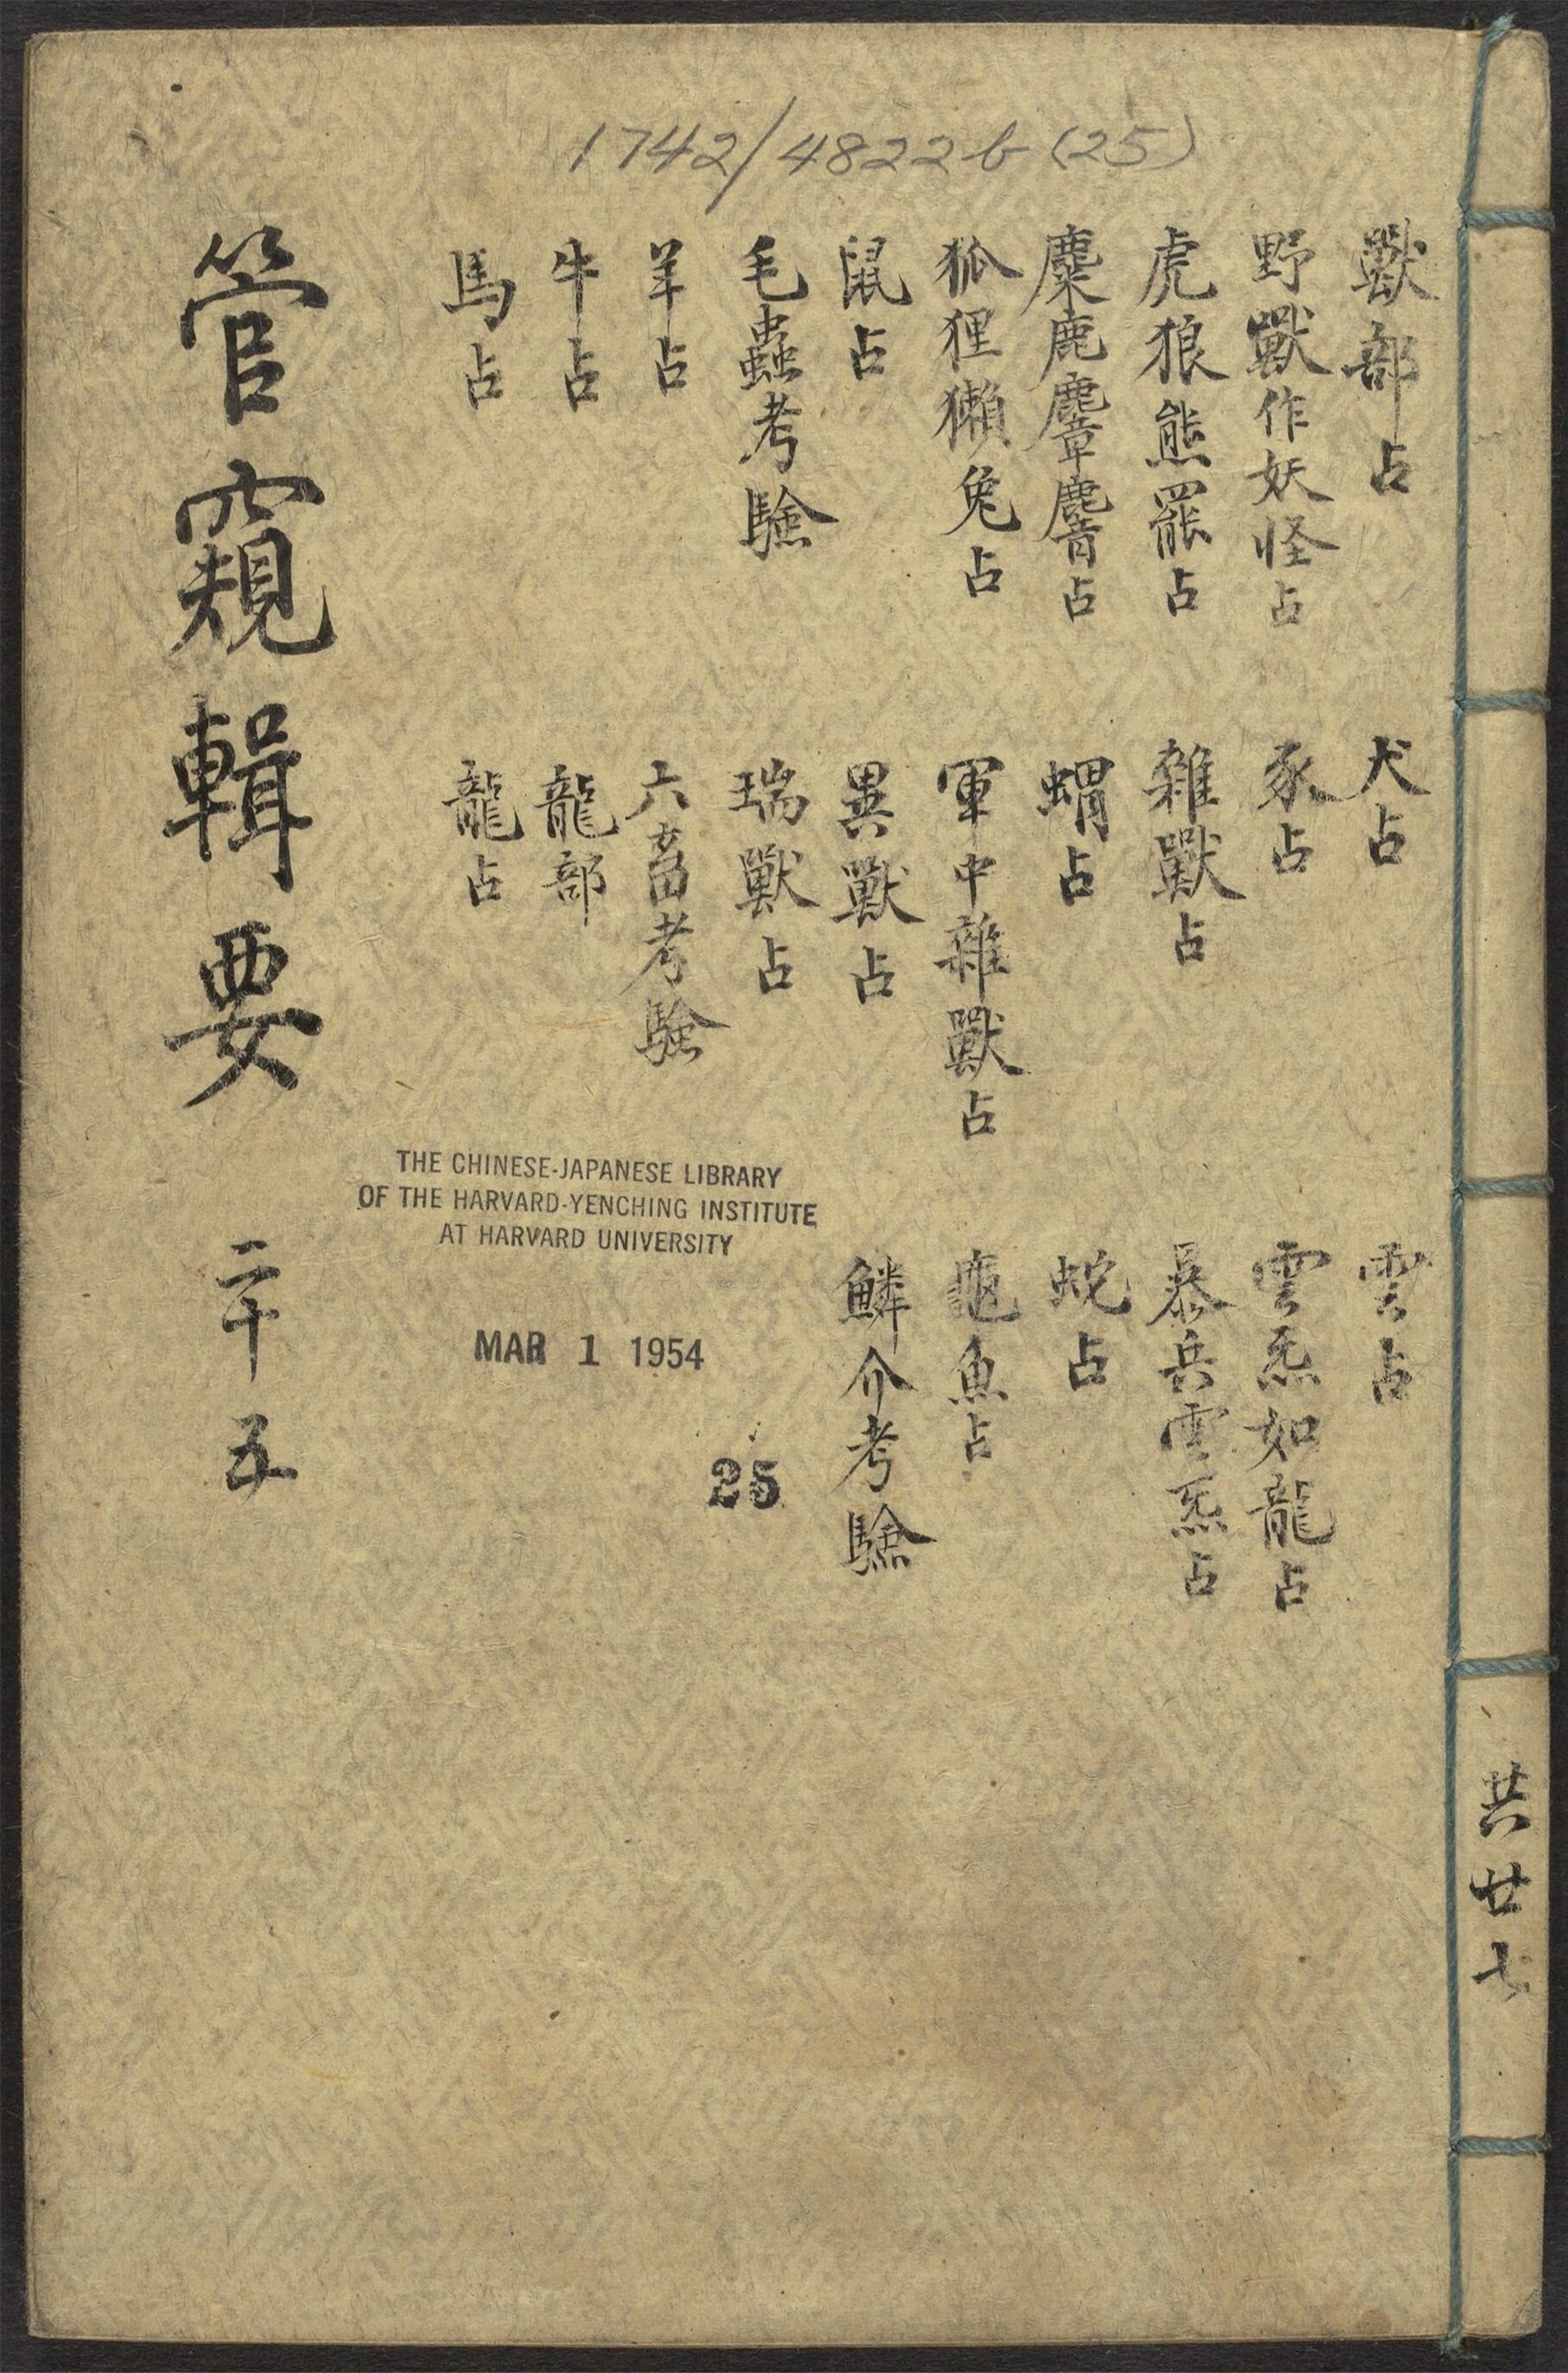 1742/4822b (25)
獸部占
野獸作妖怪占
虎狼熊羆占
麋鹿麞麝占
狐狸獺兔占
鼠占
毛蟲考驗
羊占
牛占
馬占
犬占
豕占
雜獸占
蝟占
軍中雜獸占
異獸占
瑞獸占
六畜考驗
龍部
龍占
雲占
雲炁如龍占
暴兵雲炁占
蛇占
龜魚占
鱗介考驗
管窺輯要
二十五
THE CHINESE-JAPANESE LIBRARY
OF THE HARVARD-YENCHING INSTITUTE
AT HARVARD UNIVERSITY
MAR 1 1954
25
共廿七